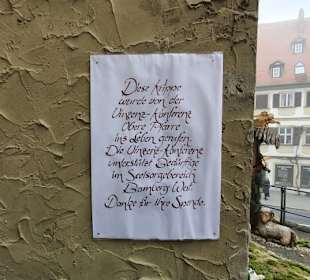 Diese Krippe
wurde von der
Vinzenz-Konferenz
Obere Pfarre
ins Leben gerufen.
Die Vinzenz-Konferenz
unterstützt Bedürftige
im Seelsorgebereich
Bamberg West
Danke für Ihre Spende.